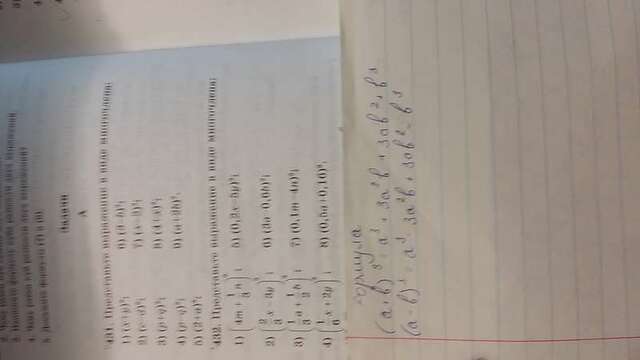 2. Чему равен куб суммы двух
3. Напишите формулу куба разности двух выражений.
4. Чему равен куб разности двух выражений?
5. Докажите формулы (7) и (8).
Задачи
А
431. Представьте выражение в виде многочлена:
1) (x+y)³; 6) (3−b)³;
2) (c−d)³; 7) (x−3)³;
3) (p+q)³; 8) (4+x)³;
4) (p−q)³; 9) (a+2b)³.
5) (2+a)³;
432. Представьте выражение в виде многочлена:
1) (4m+1/3 n)³; 5) (0,2x−5y)³;
2) (2/3 x−3y)³; 6) (3a−0,6b)³;
3) (1/3 a+1/2 b)³; 7) (0,1m−4n)³;
4) (1/6 x+2y)³; 8) (0,5a+0,1b)³.
формула
(a+b)³ = a³ + 3a²b + 3ab² + b³
(a-b)³ = a³ - 3a²b + 3ab² - b³